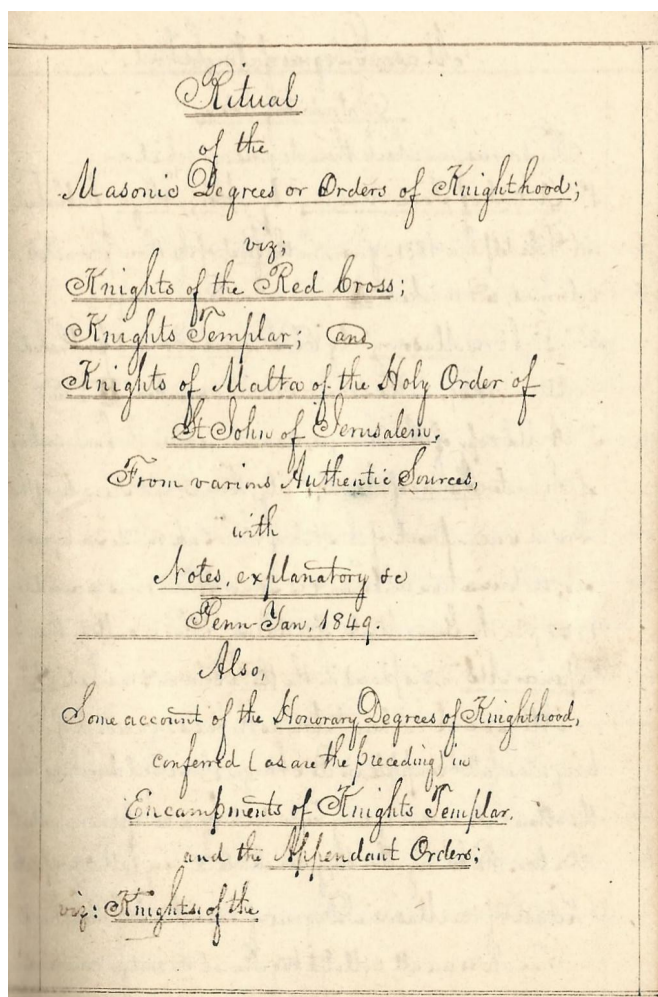 Ritual
of the
Masonic Degrees or Orders of Knighthood;
viz;
Knights of the Red Cross;
Knights Templar; and,
Knights of Malta of the Holy Order of
St John of Jerusalem.
From various Authentic Sources,
with
Notes, explanatory &c
Penn-Yan, 1849.
Also,
Some account of the Honorary Degrees of Knighthood,
conferred (as are the preceding) in
Encampments of Knights Templar,
and the Appendant Orders;
viz: Knights of the